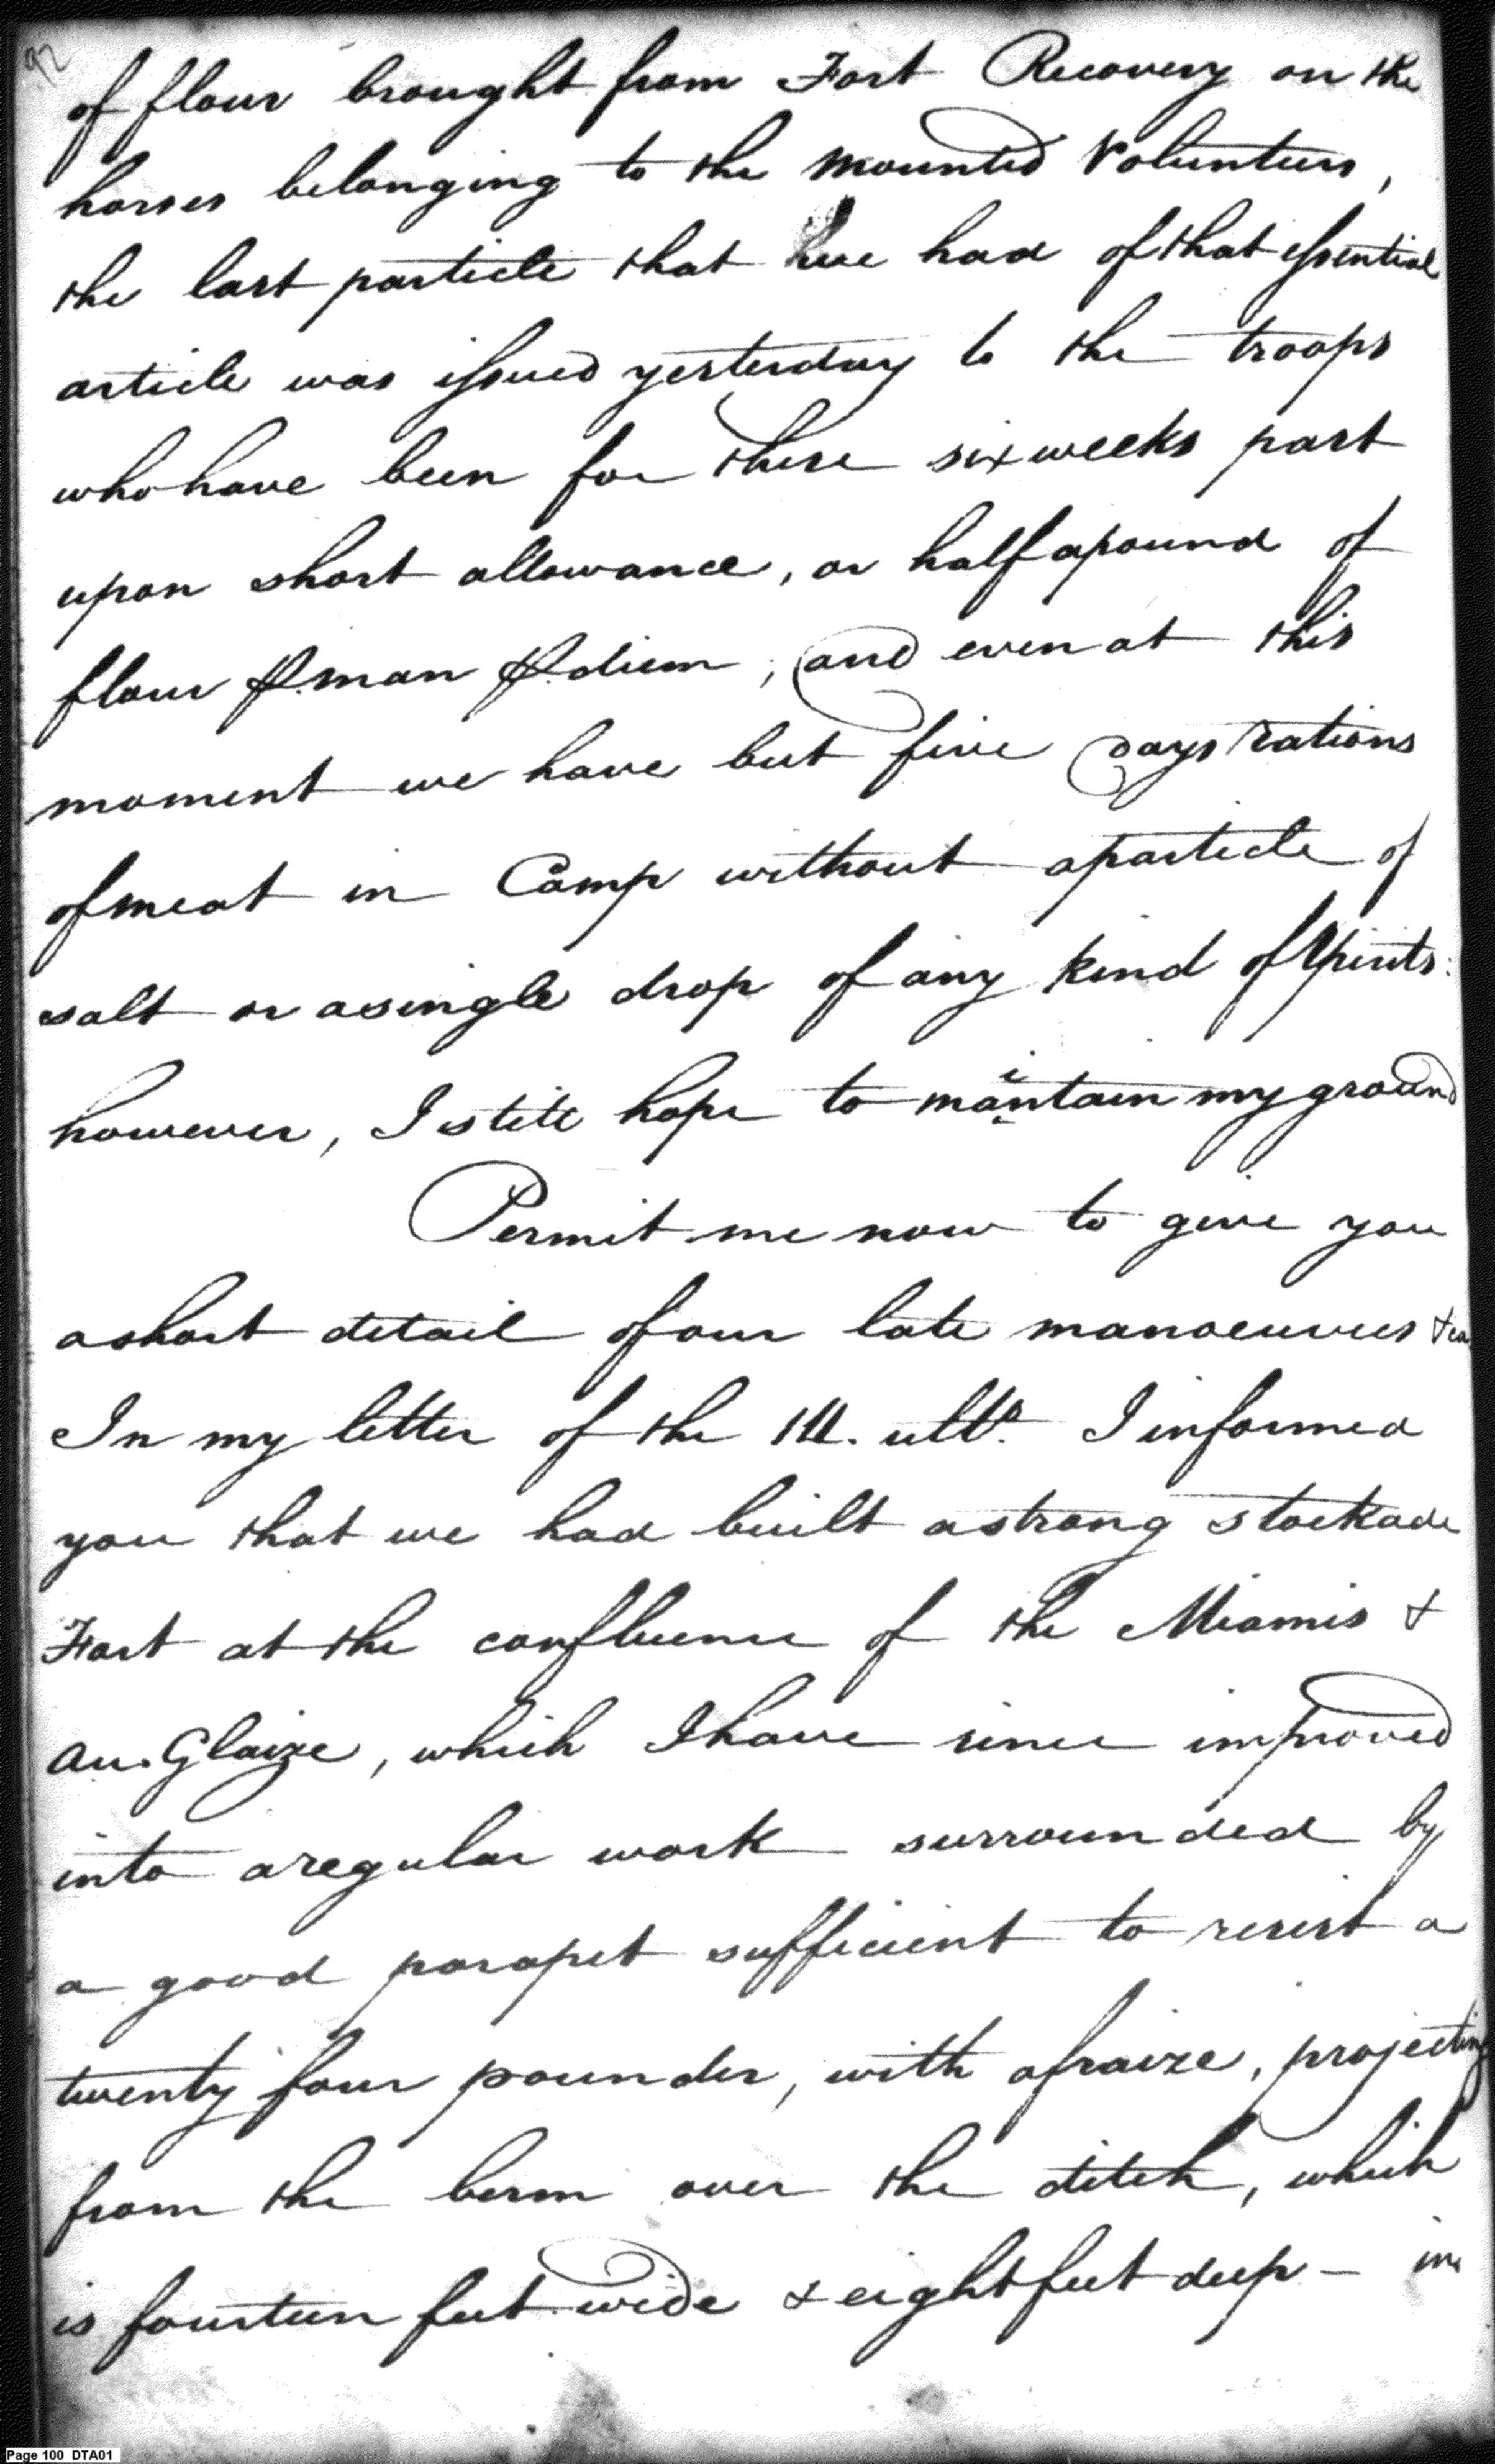 92
of flour brought from Fort Recovery on the
horses belonging to the Mounted Volunteers,
the last particle that we had of that essential
article was issued yesterday to the troops
who have been for these six weeks past
upon short allowance, or half a pound of
flour ⅌. man ⅌. diem; and even at this
moment we have but five days rations
of meat in Camp without a particle of
salt or a single drop of any kind of Spirits:
however, I still hope to maintain my ground
Permit me now to give you
a short detail of our late manoeuvres &ca.
In my letter of the 14. ulto. I informed
you that we had built a strong stockade
Fort at the confluence of the Miamis &
Au. Glaize, which I have since improved
into a regular work surrounded by
a good parapet sufficient to resist a
twenty four pounder, with a fraize, projecting
from the berm over the ditch, which
is fourteen feet wide & eight feet deep – in
Page 100 DTA01